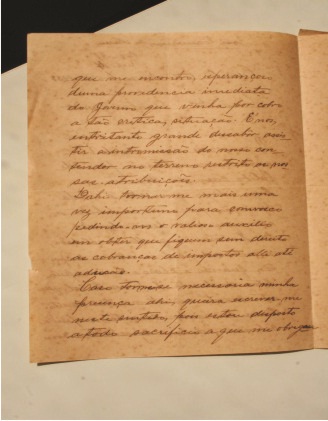 que me encontro, esperançoso
duma providencia immediata
do Govern que vinha por cobro
a tão critica situação. É nos,
entretanto grande desabor assis-
tir a intromissão do nosso con-
tendor no terreno restricto as nos-
sas attribuições.
Dahi torna me mais uma
vez importuno para comvosco
pedindo-vos o valioso auxilio
em obter que fiquem sem effeito
as cobranças de impostos até ali
Caso torne-se necessaria minha
presença ahi, queira escrever me
neste sentido, pois estou disposto
a todo sacrificio a que me obrigar